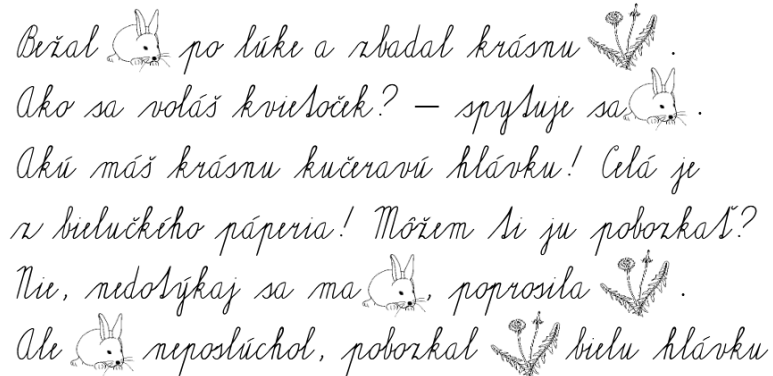 Bežal po lúke a zbadal krásnu .
Ako sa voláš kvietoček? – spytuje sa .
Akú máš krásnu kučeravú hlávku! Celá je
z bielučkého páperia! Môžem ti ju pobozkať?
Nie, nedotýkaj sa ma , poprosila .
Ale neposlúchol, pobozkal bielu hlávku